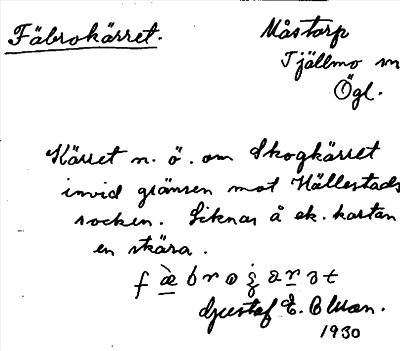 Fäbrokärret.
Måstorp
Tjällmo sn
Ögl.
Kärret n. ö. om Skogkärret
invid gränsen mot Hällestads
socken. Liknar å ek. kartan
en skära.
Gustaf E. Blman.
1930